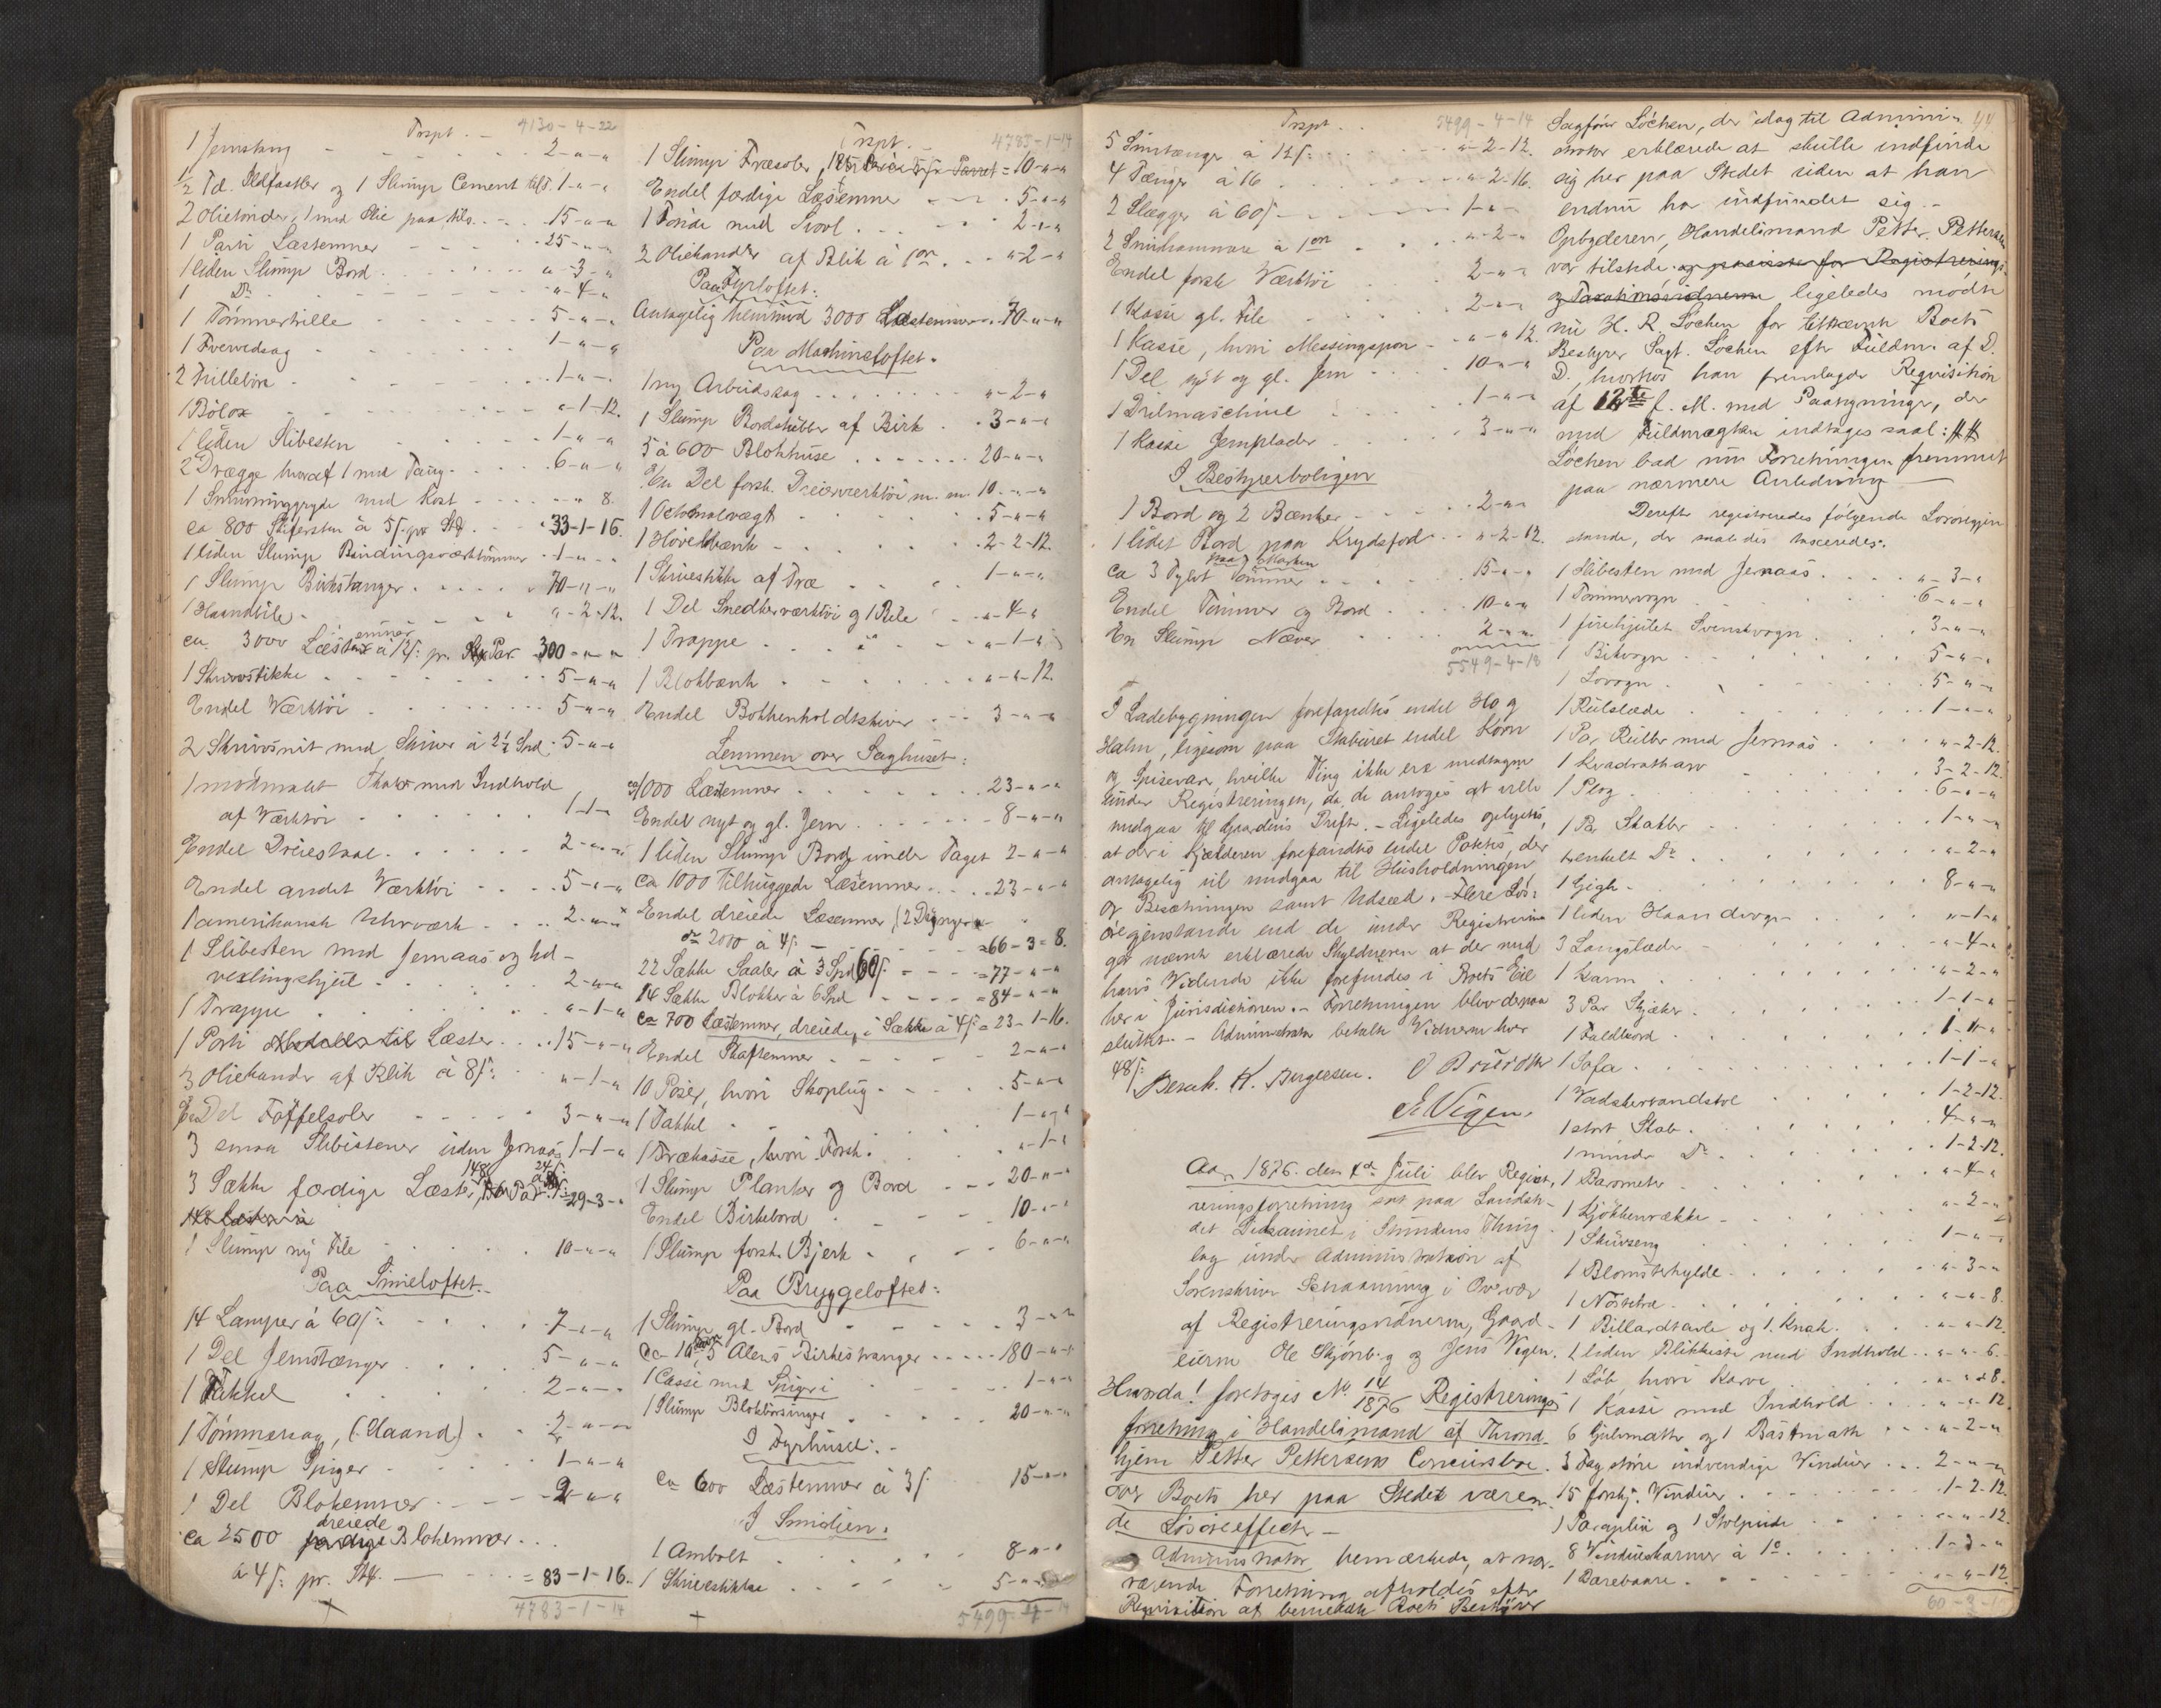 Trspt. - 4130-4-22
1 Jernstang - 2-"-"
1/2 Td. Ildfastler og 1 Slump Cement tils. 1-"-"
2 Olietønder, 1 med Olie paa tils. - 15-"-"
1 Parti Læstemner - 25-"-"
1 liden Slump Bord - "-3-"
1 Do - "-4-"
1 Tømmerhille 5-"-"
1 Tverredsag - 1-"-"
2 Trillebøre - 1-"-"
1 Bolox - "-1-12.
1 liden Slibesten 1-"-"
2 Drægge hvoraf 1 med Taug - 6-"-"
1 Smørninggryde med Kost - "-" 8.
ca 800 Slibesten à 5 s. pr Stk. - 33-1-16.
1 liden Slump Bindingsværktømmer - 1-"-"
1 Slump Birkstanger - 70-"-"
1 Haandkile - "-2-12.
ca. 3000 Læstemner à 12 s: pr. Par 300-"-"
1 Skruestikke 5-"-"
Endel Værktøi 5-"-"
2 Skruesnit med Skiver à 2 1/2 Spd. 5-"-"
1 rødmalt Skab med Indhold
af Værktøi - 1-1-"
Endel Dreiestaal - 2-"-"
Endel andet Værktøi - 5-"-"
1 amerikansk Uhrværk - 2-"-"
1 Slibesten med Jernaas og ud-
vexlingshjul - 2-"-"
1 Trappe "-1-"
1 Parti til Læster - 15-"-"
3 Oliekander af Blik à 8 s: "-1-"
En Del Tøffelsoler - 3-"-"
3 smaa Slibestener uden Jernaas 1-1-"
3 Sække færdige Læster, 148 Par 24 s: 29-3-"
1 Slump ny File 10-"-"
Paa Smieloftet. -
14 Lamper à 60 s: 7-"-"
1 Del Jernstænger 5-"-"
1 Takkel 2-"-"
1 Tømmersag, (Haand) 2-"-"
1 Slump Spiger - 1-"-"
1 Del Blokemner - 2-"-"
ca 2500 dreiede Blokemner
à 4 s: pr. Stk. - = 83-1-16.
4783-1-14
Trspt. - 4783-1-14
1 Slump Træsoler, = 10-"-"
Endel færdige Læstemner 5-"-"
1 Tønde med Svovl 2-"-"
2 Oliekander af Blik à 1 ort "-2-"
Paa Fyrloftet:
Antagelig henimod 3000 Læstemner - 70-"-"
Paa Machineloftet.
1 ny Arbeidssag "-2-"
1 Slump Bordstubber af Birk 3-"-"
5 à 600 Blokhuse 20-"-"
En Del forsk. Dreierværktøi m. m. 10-"-"
1 Decimalvægt - 5-"-"
1 Høvelbænk - 2-2-12.
1 Skruestikke af Træ 1-"-"
1 Del Snedkerværktøi og 1 Bile "-4-"
1 Trappe "-1-"
1 Blokbænk "-"-12.
Endel Bokkenholdtskiver 3-"-"
Lemmen over Saghuset:
ca 1000 Læstemner 23-"-"
Endel nyt og gl. Jern - 8-"-"
1 liden Slump Bord under Taget 2-"-"
ca 1000 tilhuggede Læstemner - 23-"-"
Endel dreiede Læstemner, 2 Dynger
ca 2000 à 4 s: - = 66-3-8.
22 Sække Saaler à 3 Spd 60 s: = 77-"-"
14 Sække Blokker à 6 Spd = 84-"-"
ca 700 Læstemner, dreiede, i Sække à 4 s: = 23-1-16.
Endel Skaftemner - 2-"-"
10 Poser, hvori Skoplug - 5-"-"
1 Takkel - 1-"-"
1 Trækasse, hvori Forsk. "-1-"
1 Slump Planker og Bord - 20-"-"
Endel Birkebord - 10-"-"
1 Slump forsk. Bjerk - 6-"-"
Paa Bryggeloftet:
1 Slump gl. Bord - 3-"-"
Ca 5 Alens Birkestranger - 180-"-"
1 Casse med Spiger i 1-"-"
1 Slump Blokbøsinger 20-"-"
I Fyrhuset: -
Ca 600 Læstemner à 3 s. 15-"-"
I Smidien.
1 Ambolt 8-"-"
1 Skruestikke 5-"-"
5499-4-14
Trspt. 5499-4-14
5 Smitænger à 12 s: "-2-12.
4 Tænger à 16 "-2-16.
2 Slægger à 60 s - 1-"-"
2 Smidhammere à 1 ort "-2-"
Endel forsk Værktøi 2-"-"
1 Kasse gl. File 2-"-"
1 Kasse, hvori Messingspon "-"-12.
1 Del nyt og gl. Jern 10-"-"
1 Drilmaschine 1-"-"
1 Kasse Jernplader 3-"-"
I Bestyrerboligen
1 Bord og 2 Bænker - 2-"-"
1 lidet Bord paa Krydsfod - "-2-12.
ca 3 Tylvt Tømmer paa Marken 15-"-"
Endel Tømmer og Bord 10-"-"
En Slump Næver 2-"-"
5549-4-18
I Ladebygningen forefandtes endel Hø og
Halm, ligesom paa Staburet endel Korn
og Spisevarer, hvilke Ting ikke ere medtagne
under Registreringen, da de antoges at ville
medgaa til Gaardens Drift. - Ligeledes oplystes,
at der i Kjælderen forefandtes endel Potetes, der
antagelig vil medgaa til Husholdningen
og Besætningen samt Udsæd. - Flere Løs-
øregjenstande end de under Registrerin
gen nævnte erklærede Skyldneren at der med
hans Vidende ikke forefindes i Boets Eie
her i Jurisdictionen. - Forretningen blev dermed
sluttet. - Administrator betalte Vidnerne hver
48 s:
Berch. K. Bergersen.
J. Vigen.
Aar 1876 den 4de Juli blev Regist,
reringsforretning sat paa Landste-
det i Strindens Thing-
lag under Administration af
Sorenskriver i Overvær
af Registreringsvidnerne, Gaard-
eierne Ole Skjønb.g og Jens Vigen.
Hvorda! foretoges No. 14/1876 Registrerings
forretning i Handelsmand af Thrond-
hjem Petter Pettersens Concursbo
over Boets her paa Stedet væren-
de Løsøreeffecter -
Administrator bemærkede, at nær-
værende Forretning afholdes efter
Requisition af bemeldte Boets Bestyrer
Sagfører Löchen, der idag til Admini- 44
strator erklærede at skulle indfinde
sig her paa Stedet siden at han
endnu har indfundet sig. -
Opbyderen, Handelsmand Petter Pettersen
var tilstede
ligeledes mødte
nu H. R. Löchen for Boets
Bestyrer Sagf. Löchen efter Fuldm. af D.
D., hvorhos han fremlagde Requisition
af 12te f. M. med Paategninger, der
med Fuldmagten indtages saal: ##
Löchen bad nu Forretningen fremmet
paa nærmere Anledning -
Derefter registreredes følgende Løsøregjen
stande, der saaledes taxeredes:
1 Slibesten med Jernaas "-3-"
1 Tømmervogn 6-"-"
1 firehjulet Svenskvogn 3-"-"
1 Bikvogn 5-"-"
1 Lovogn 5-"-"
1 Rulslæde 1-"-"
1 Par Ruller med Jernaas "-2-12.
1 Kvadratharv 3-2-12.
1 Plog 6-"-"
1 Par Skakler 1-"-"
1 enkelt Do "-2-"
1 Gigh - 8-"-"
1 liden Haandvogn "-1-"
3 Langslæder "-4-"
1 Karm "-2-"
3 Par Skjæker 1-1-"
1 Faldbord
1 Sofa 1-1-"
1 Vadskervandstol 1-2-12.
1 stort Skab 4-"-"
1 mindre Do 1-2-12.
1 Barometer "-4-"
1 Kjøkkenrække "-2-"
1 Skuvseng 1-"-"
1 Blomsterhylde "-3-"
1 "-"-8.
1 Billardtavle og 1 Knak. "-"-12.
1 liden Blikkiste med Indhold "-"-6.
1 Løb, hvori Karve
1 Kasse med Indhold "-"-12.
6 Gulvmatter og 1 Bastmatte "-2-"
3 Fag større indvendige Vinduer 2-"-"
15 forskj. Vinduer 1-2-12.
1 Paraplui og 1 "-"-12.
8 Vindueskarmer à 1 o. 1-3-"
1 Barebaare "-"-12.